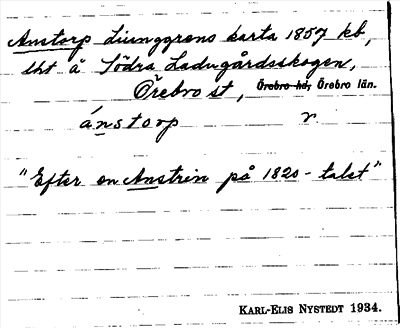 Anstorp Ljunggrens karta 1857 kb,
lht å Södra Ladugårdsskogen,
Örebro st, Örebro hd, Örebro län.
ánstorp r.
"Efter en Anstrin på 1820-talet"
KARL-ELIS NYSTEDT 1934.